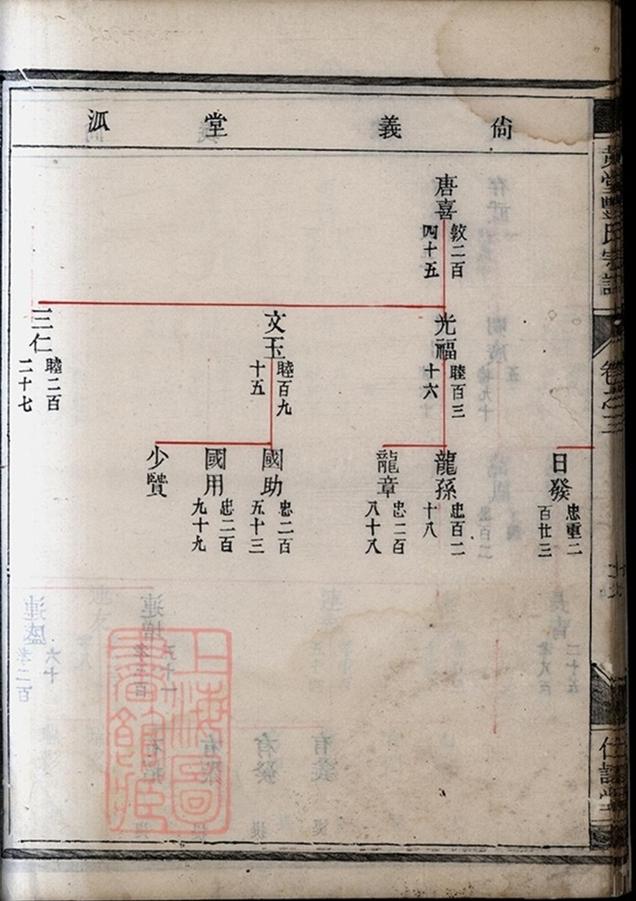 尙義堂派
唐喜
敦二百
四十五
光福
睦百三
十六
文玉
睦百九
十五
三仁
睦二百
二十七
日發
忠重二
百廿三
龍孫
忠百二
十八
龍章
忠二百
八十八
國助
忠二百
五十三
國用
忠二百
九十九
少賢
氏宗譜
卷之三
上海圖書館藏